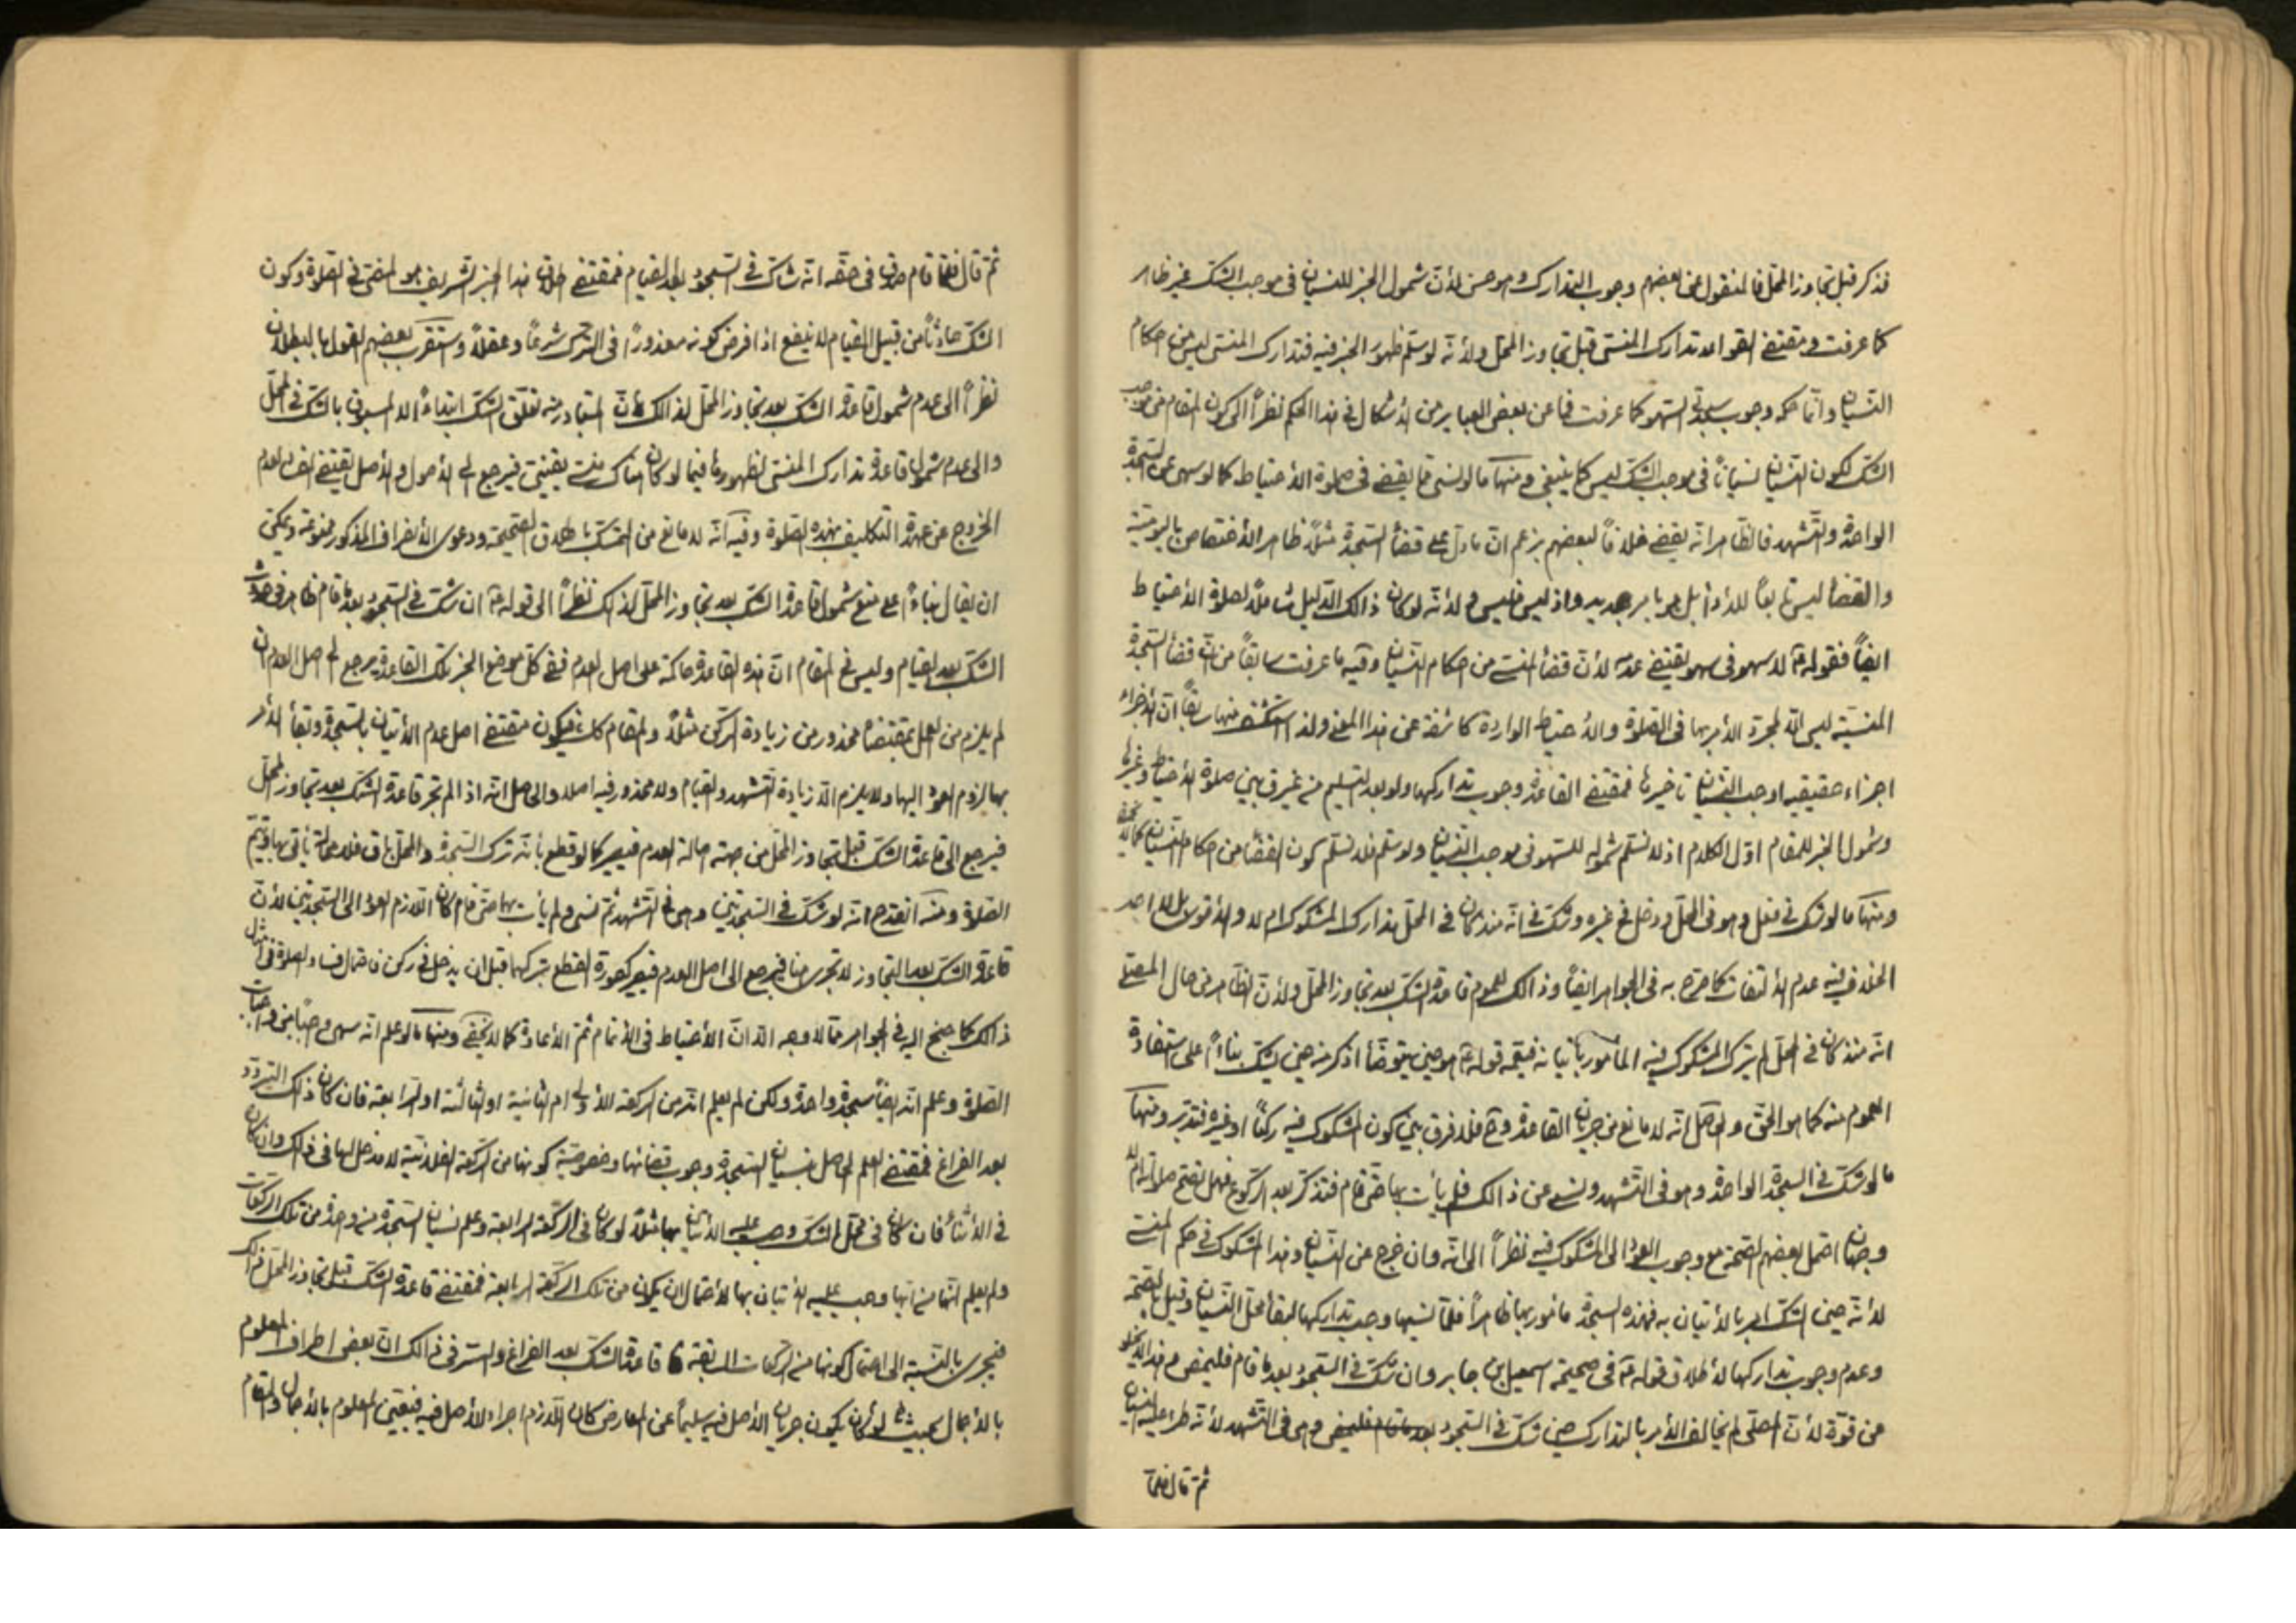 فذكر قبل تجاوز المحل فالمنقول عن بعضهم وجوب التدارك وهو حسن لأنّ شمول الخبر للنسيان في موجب الشك غير ظاهر
كما عرفت ومقتضى القواعد تدارك المنسي قبل تجاوز المحل ولأنه لو سلم ظهور الخبر فيه فتدارك المنسي ليس من احكام
النسيان وانما حكمه وجوب سجدتي السهو كما عرفت فما عن بعض العباير من الأشكال في هذا الحكم نظراً الى كون المقام من موجب
الشك لكون النسيان نسياناً في موجب الشك ليس كما ينبغي ومنها ما لو نسي ما يقضى في صلوة الأحتياط كما لو سهى عن السجدة
الواحدة والتشهد فالظاهر انه يقضى خلافاً لبعضهم بزعم انّ ما دلّ على قضاء السجدة مثلاً ظاهر الأختصاص باليومية
والقضاء ليس تابعاً للأداء بل هو بامر جديد واذ ليس فليس ولأنه لو كان ذالك الدليل شاملاً لصلوة الأحتياط
ايضاً فقوله ع لا سهو في سهو يقتضى عدمه لأنّ قضاء المنسي من احكام النسيان وفيه ما عرفت سابقاً من انّ قضاء السجدة
المنسية ليس الا لمجرد الأمر بها في الصلوة والأحتياط الواردة كاشفة عن هذا المعنى ولذا استكشف منها سابقاً ان الأجزاء
اجزاء حقيقيه اوجب النسيان تأخيرها فمقتضى القاعدة وجوب تداركها ولو بعد التسليم من غير فرق بين صلوة الأحتياط وغيرها
وشمول الخبر للمقام اوّل الكلام اذ لا نسلم شموله للسهو في موجب النسيان ولو سلم فلا نسلم كون القضاء من احكام النسيان كما لا يخفى
ومنها ما لو شك في فعل وهو في المحل ودخل في غيره وشك في انه منذ كان في المحل تدارك المشكوك ام لا والأقوى بل لا احد
الخلاف فيه عدم الألتفات كما صرّح به في الجواهر ايضاً وذالك لعموم قاعدة الشك بعد تجاوز المحل ولأنّ الظاهر من حال المصلى
انه منذ كان في المحل لم يترك المشكوك فيه المأمور باتيانه فيعمه قوله ع هو حين يتوضأ اذكر منه حين يشك بناءً على استفادة
العموم منه كما هو الحق والحاصل انه لا مانع من جريان القاعدة وح فلا فرق بين كون المشكوك فيه ركناً او غيره فتدبر ومنها
ما لو شك في السجدة الواحدة وهو في التشهد ونسى عن ذالك فلم يأت بها حتى قام فتذكر بعد الركوع فهل تصح صلوته ام لا
وجهان احتمل بعضهم الصحة مع وجوب العود الى المشكوك فيه نظراً الى انه وان خرج عن النسيان وهذا المشكوك في حكم المنسي
لأنه حين الشك امر بالأتيان به فهذه السجدة مأمور بها ظاهراً فلما نسيها وجب تداركها لبقاء محل النسيان وقيل بالصحة
وعدم وجوب تداركها لأطلاق قوله ع في صحيحة اسمعيل بن جابر وان شك في السجود بعد ما قام فليمض وهذا لا يخلو
من قوة لأنّ المصلى لم يخالف الأمر بالتدارك حين شك في السجود بعد ما قام فليمض وهو في التشهد لأنه طرء عليه النسيان
ثم قال فلما
ثم قال فلما قام صدق في حقه انه شاك في السجود بعد القيام فمقتضى اطلاق هذا الخبر الشريف هو المضى في الصلوة وكون
الشك حادثاً من قبيل القيام لا ينفع اذا فرض كونه معذوراً في الترك شرعاً وعقلاً واستقرب بعضهم القول بالبطلان
نظراً الى عدم شمول قاعدة الشك بعد تجاوز المحل لذالك لأنّ المتبادر منه تعلق الشك ابتداءً الا المسبوق بالشك في المحل
والى عدم شمول قاعدة تدارك المنسي لظهورها فيما لو كان هناك منسي يقيني فيرجع الى الأصول والأصل يقتضى الفساد لعدم
الخروج عن عهدة التكليف بهذه الصلوة وفيه انه لا مانع من التمسك باطلاق الصحيحة ودعوى الأنصراف المذكور ممنوعة ويمكن
ان يقال بناءً على منع شمول قاعدة الشك بعد تجاوز المحل لذالك نظراً الى قوله ع ان شك في السجود بعد ما قام ظاهر في حدوث
الشك بعد القيام وليس في المقام انّ هذه القاعدة حاكمة على اصل العدم ففي كل موضع لم يجر تلك القاعدة يرجع الى اصل العدم ان
لم يلزم من العمل بمقتضاه محذور من زيادة الركن مثلاً والمقام كك فيكون مقتضى اصل عدم الأتيان بالسجدة وبقاء الأمر
بها لزوم العود اليها ولا يلزم الا زيادة التشهد والقيام ولا محذور فيه اصلا والحاصل انه اذا لم تجر قاعدة الشك بعد تجاوز المحل
فيرجع الى قاعدة الشك قبل تجاوز المحل من جهة اصالة العدم فيصير كما لو قطع بأنه ترك السجدة والمحل باق فلا محالة يأتى بها ويتم
الصلوة ومنه انقدح انه لو شك في السجدتين وهو في التشهد ثم نسى ولم يأت بهما حتى قام كان اللازم العود الى السجدتين لأنّ
قاعدة الشك بعد التجاوز لا تجرى هنا فيرجع الى اصل العدم فيصير كصورة القطع بتركهما قبل ان يدخل في ركن فاحتمال فساد الصلوة في مثل
ذالك كما جنح اليه في الجواهر مما لا وجه الا انّ الأحتياط في الأتمام ثم الأعادة كما لا يخفى ومنها ما لو علم انه سهى واجباً من واجبات
الصلوة وعلم انه ايضاً سجدة واحدة ولكن لم يعلم انه من الركعة الأولى ام الثانية او الثالثة او الرابعة فان كان ذالك التردد
بعد الفراغ فمقتضى العلم الحاصل بنسيان السجدة وجوب قضائها وخصوصية كونها من الركعة الفلانية لا مدخل لها في ذالك وان كان
في الأثناء فان كان في محل الشك وجب عليه الأتيان بها مثلاً لو كان في الركعة الرابعة وعلم نسيان السجدة من واحدة من تلك الركعات
ولم يعلم انها من ايها وجب عليه الأتيان بها لأحتمال ان يكون من تلك الركعة الرابعة فمقتضى قاعدة الشك قبل تجاوز المحل ذالك
فيجرى بالنسبة الى احتمال كونها من الركعات السابقة قاعدة الشك بعد الفراغ والسر في ذالك انّ بعض اطراف المعلوم
بالأجمال بحيث لو كان يكون جريان الأصل فيه سليماً عن المعارض كان اللازم اجراء الأصل فيه فيتعين المعلوم بالأجمال والمقام